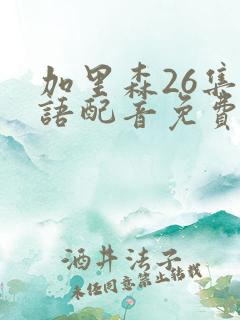 加里森26集
語配音免費
酒井法子
未経同意禁止轉載